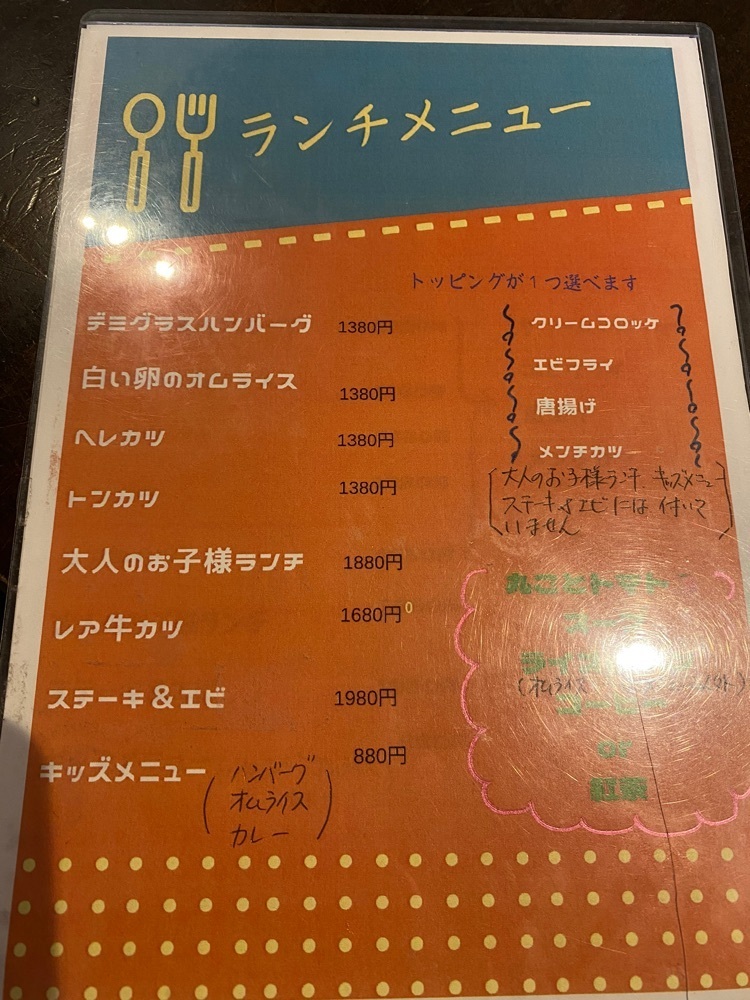 ランチメニュー
トッピングが1つ選べます
デミグラスハンバーグ 1380円
白い卵のオムライス 1380円
ヘレカツ 1380円
トンカツ 1380円
大人のお子様ランチ 1880円
レア牛カツ 1680円0
ステーキ&エビ 1980円
キッズメニュー 880円
(ハンバーグ
オムライス
カレー)
クリームコロッケ
エビフライ
唐揚げ
メンチカツ
(大人のお子様ランチ、キッズメニュー
ステーキ&エビには付いて
いません)
丸ごとトマト
スープ
(オムライス
コーヒー
or
紅茶